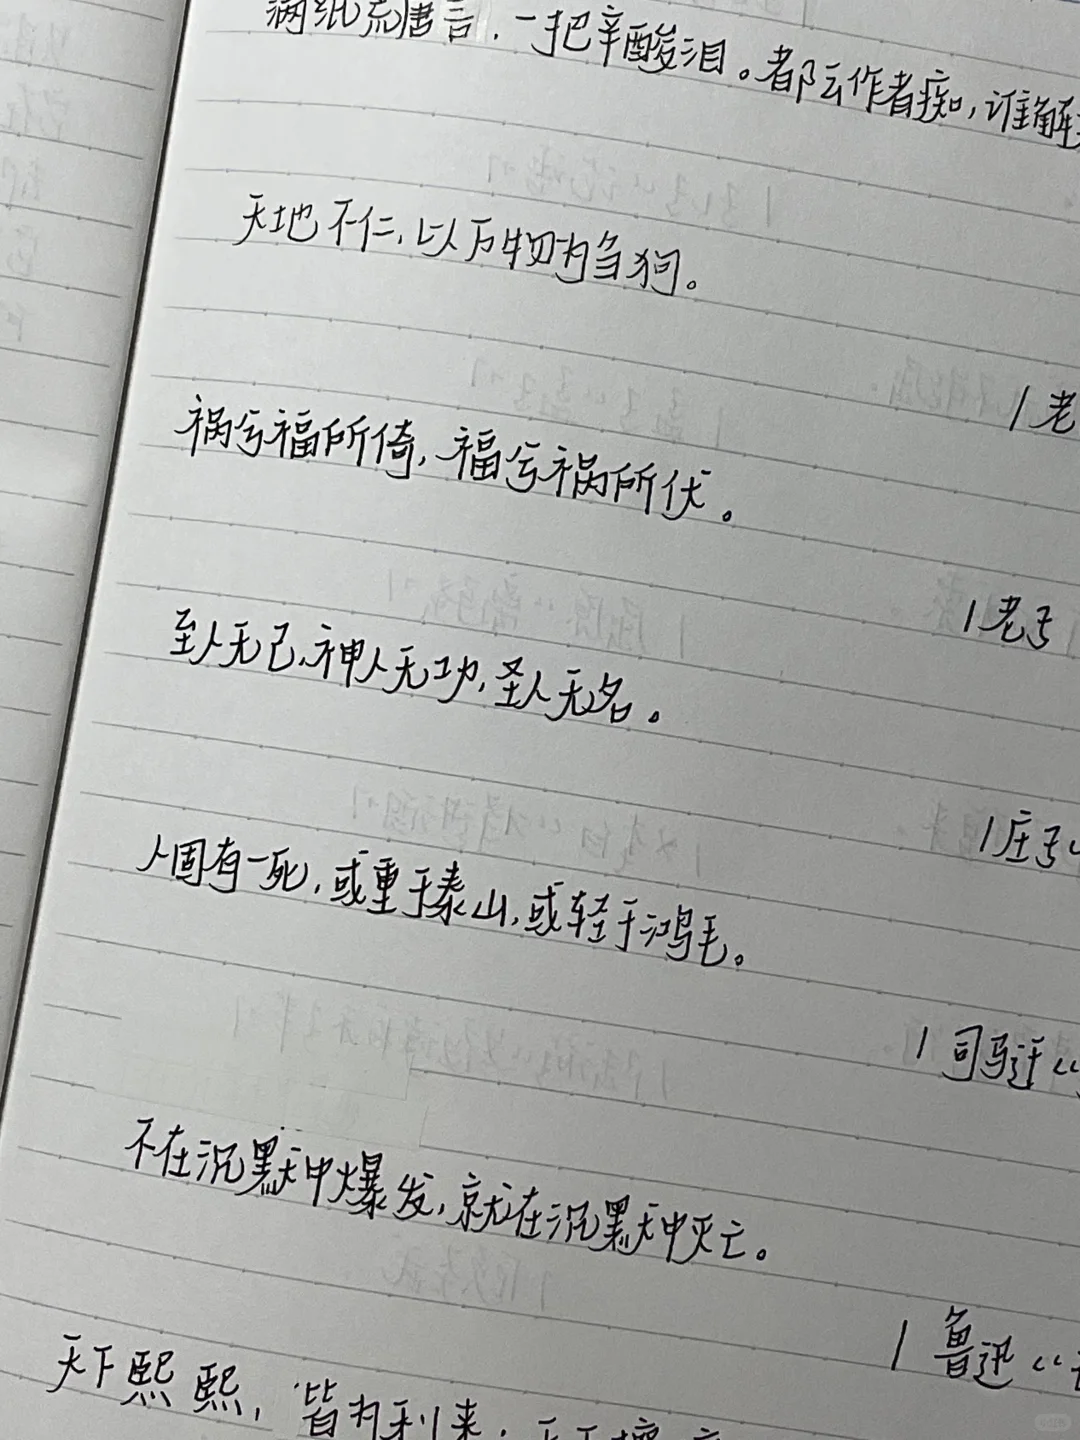 满纸荒唐言，一把辛酸泪。都云作者痴，谁解
天地不仁，以万物为刍狗。
| 老
祸兮福所倚，福兮祸所伏。
| 老子
至人无己，神人无功，圣人无名。
| 庄子
人固有一死，或重于泰山，或轻于鸿毛。
| 司马迁《
不在沉默中爆发，就在沉默中灭亡。
| 鲁迅《
天下熙熙，皆为利来，天下攘